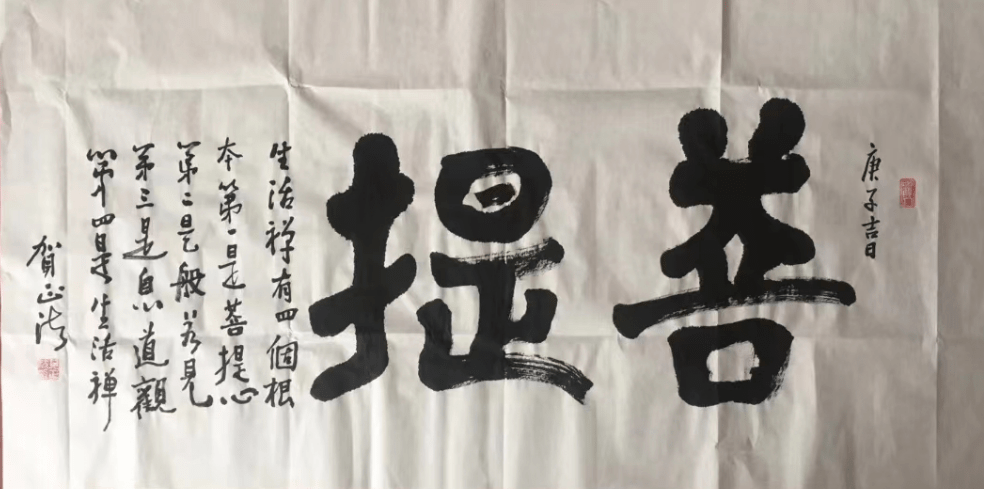 庚子吉日
菩提
生活禅有四個根
本第一是菩提心
第二是般若見
第三是息道觀
第四是生活禅
賀正